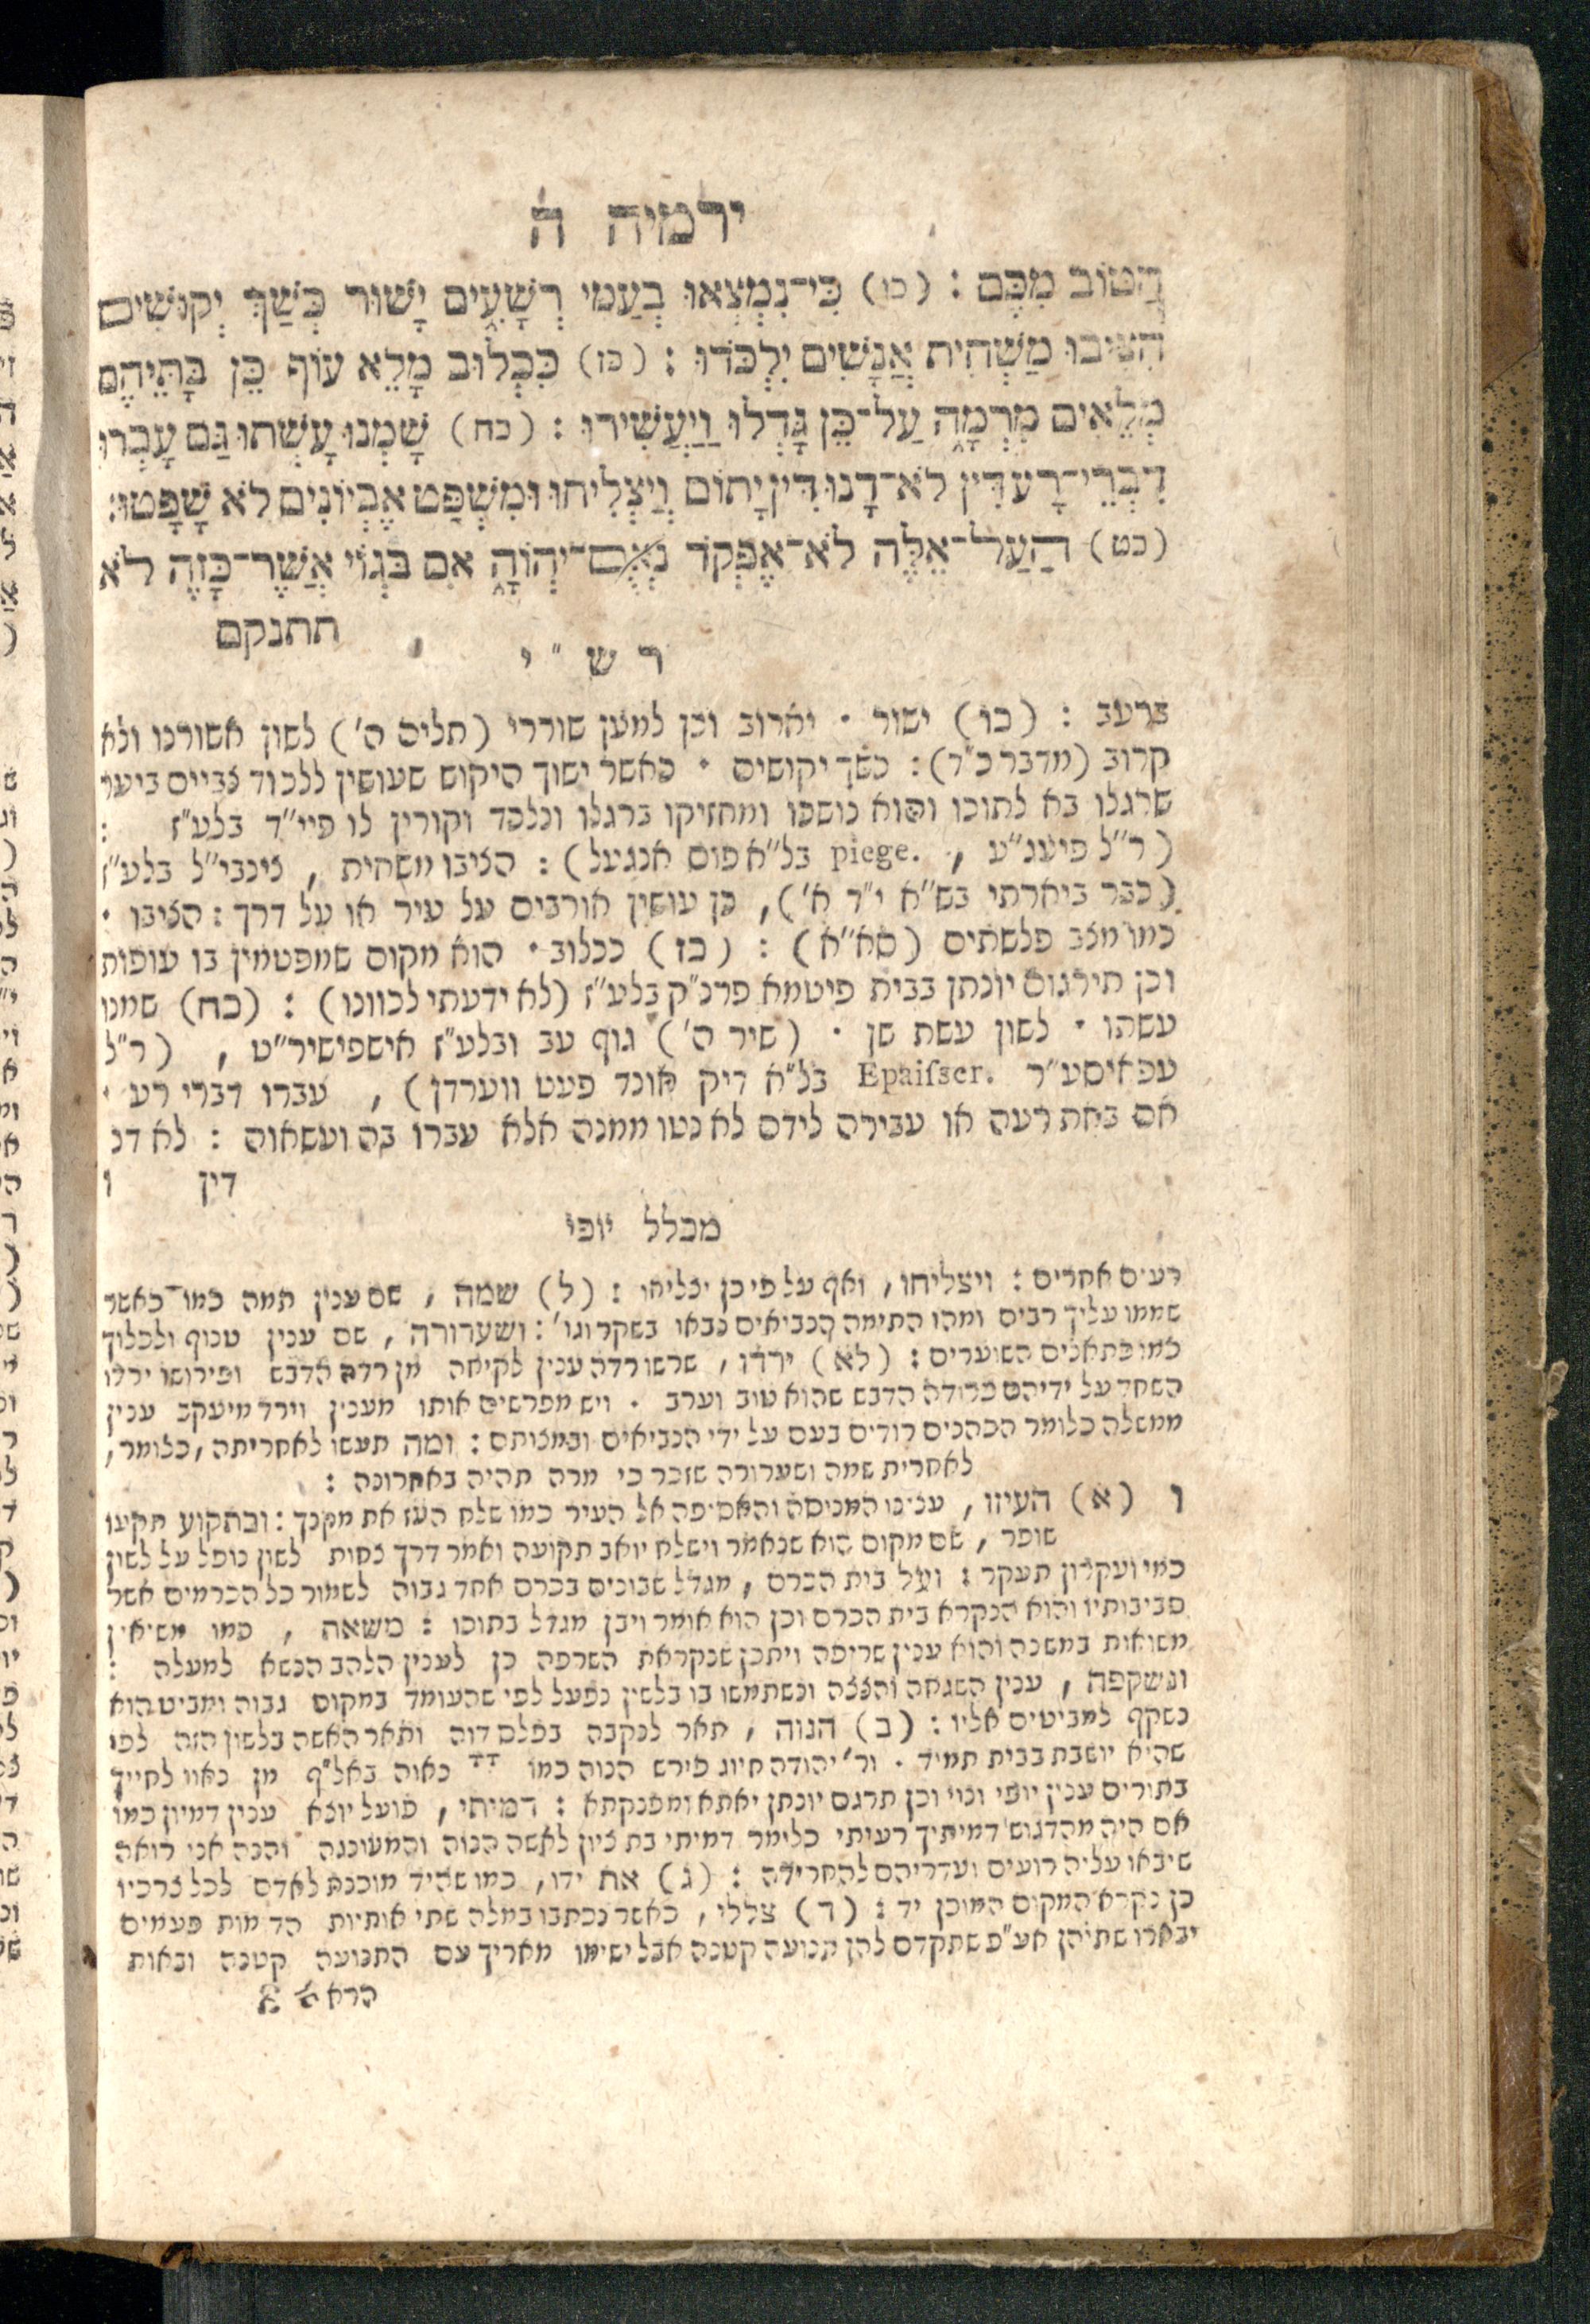 ירמיה ה
הַטּוֹב מִכֶּם : (כו) כִּי־נִמְצְאוּ בְעַמִּי רְשָׁעִים יָשׁוּר כְּשַׁךְ יְקוּשִׁים
הִצִּיבוּ מַשְׁחִית אֲנָשִׁים יִלְכֹּדוּ : (כז) כִּכְלוּב מָלֵא עוֹף כֵּן בָּתֵּיהֶם
מְלֵאִים מִרְמָה עַל־כֵּן גָּדְלוּ וַיַּעֲשִׁירוּ : (כח) שָׁמְנוּ עָשְׁתוּ גַּם עָבְרוּ
דִבְרֵי־רָע דִּין לֹא־דָנוּ דִּין יָתוֹם וְיַצְלִיחוּ וּמִשְׁפַּט אֶבְיוֹנִים לֹא שָׁפָטוּ:
(כט) הַעַל־אֵלֶּה לֹא־אֶפְקֹד נְאֻם־יְהוָֹה אִם בְּגוֹי אֲשֶׁר־כָּזֶה לֹא
תתנקם
ר ש " י
ברעב : (כו) ישור · יארוב וכן למען שוררי (תלים ה') לשון אשורנו ולא
קרוב (מדבר כ"ד): כשך יקושים · כאשר ישוך היקוש שעושין ללכוד צביים ביער
שרגלו בא לתוכו והוא נושכו ומחזיקו ברגלו ונלכד וקורין לו פיי"ד בלע"ז :
(ר"ל פיענ"ע , piege. בל"א פוס אנגעל) : הציבו משחית , זינבי"ל בלע"ז
(כבר ביארתי בש"א י"ד א'), כן עושין אורבים על עיר או על דרך : הציבו ·
כמו מצב פלשתים (סא"א) : (כז) ככלוב · הוא מקום שמפטמין בו עופות
וכן תירגום יונתן בבית פיטמא פרנ"ק בלע"ז (לא ידעתי לכוונו) : (כח) שמנו
עשתו · לשון עשת שן · (שיר ה') גוף עב ובלע"ז אישפישיר"ט , (ר"ל
עפאיסע"ר Epaiſser. בל"א דיק אונד פעט ווערדן) , עברו דברי רע ·
אם באת רעה או עבירה לידם לא נטו ממנה אלא עברו בה ועשאוה : לא דנ
דין ו
מכלל יופי
רעים אחרים : ויצליחו, ואף על פי כן יצליחו : (ל) שמה , שם ענין תמה כמו כאשר
שממו עליך רבים ומהו התימה הנביאים נבאו בשקר וגו' : ושערורה , שם ענין טנוף ולכלוך
כמו כתאנים השוערים : (לא) ירדו , שרשו רדה ענין לקיחה מן רדה הדבש ופירושו ירדו
השחד על ידיהם כרודה הדבש שהוא טוב וערב · ויש מפרשים אותו מענין וירד מיעקב ענין
ממשלה כלומר הכהנים רודים בעם על ידי הנביאים ובמצותם : ומה תעשו לאחריתה , כלומר,
לאחרית שמה ושערורה שזכר כי מרה תהיה באחרונה :
ו (א) העיזו , ענינו הכניסה והאסיפה אל העיר כמו שלח העז את מקנך : ובתקוע תקעו
שופר , שם מקום הוא שנאמר וישלח יואב תקועה ואמר דרך צחות לשון נופל על לשון
כמו ועקרון תעקר : ועל בית הכרם , מגדל שבונים בכרם אחד גבוה לשמור כל הכרמים אשר
סביבותיו והוא הנקרא בית הכרם וכן הוא אומר ויבן מגדל בתוכו : משאה , כמו משיאין
משואות במשנה והוא ענין שריפה ויתכן שנקראת השרפה כן לענין הלהב הנשא למעלה :
ונשקפה , ענין השגחה והצצה ונשתמשו בו בלשון נפעל לפי שהעומד במקום גבוה ומביט הוא
נשקף למביטים אליו : (ב) הנוה , תאר לנקבה בפלס דוה ותאר האשה בלשון הזה לפי
שהיא יושבת בבית תמיד · ור' יהודה חיוג פירש הנוה כמו נאוה באל"ף מן נאוו לחייך
בתורים ענין יופי ונוי וכן תרגם יונתן יאתא ומפנקתא : דמיתי , פועל יוצא ענין דמיון כמו
אם היה מהדגוש דמיתיך רעיתי כלומר דמיתי בת ציון לאשה הנוה והמעונגה והנה אני רואה
שיבאו עליה רועים ועדריהם להחרידה : (ג) את ידו, כמו שהיד מוכנת לאדם לכל צרכיו
כן נקרא המקום המוכן יד : (ד) צללי , כאשר נכתבו במלה שתי אותיות הדמות פעמים
יבארו שתיהן אע"פ שתקדם להן תנועה קטנה אבל ישימו מאריך עם התנועה קטנה ובאות